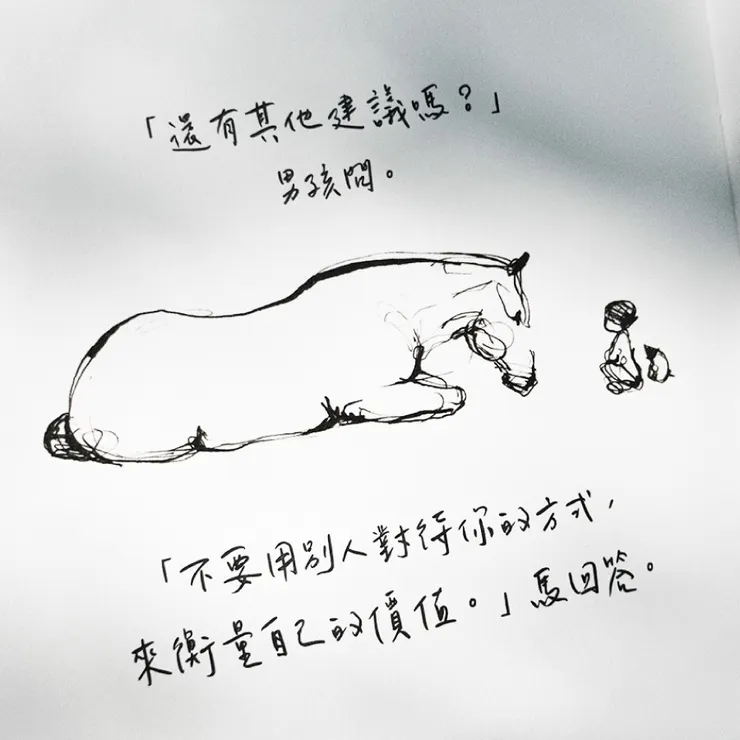 「還有其他建議嗎？」
男孩問。
「不要用別人對待你的方式，
來衡量自己的價值。」馬回答。